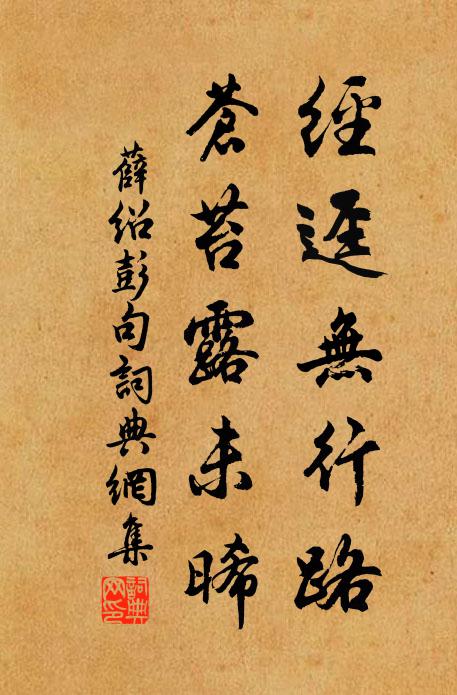 經逕無行路
蒼苔露未晞
薛紹彭句詞典網集
詞典网印